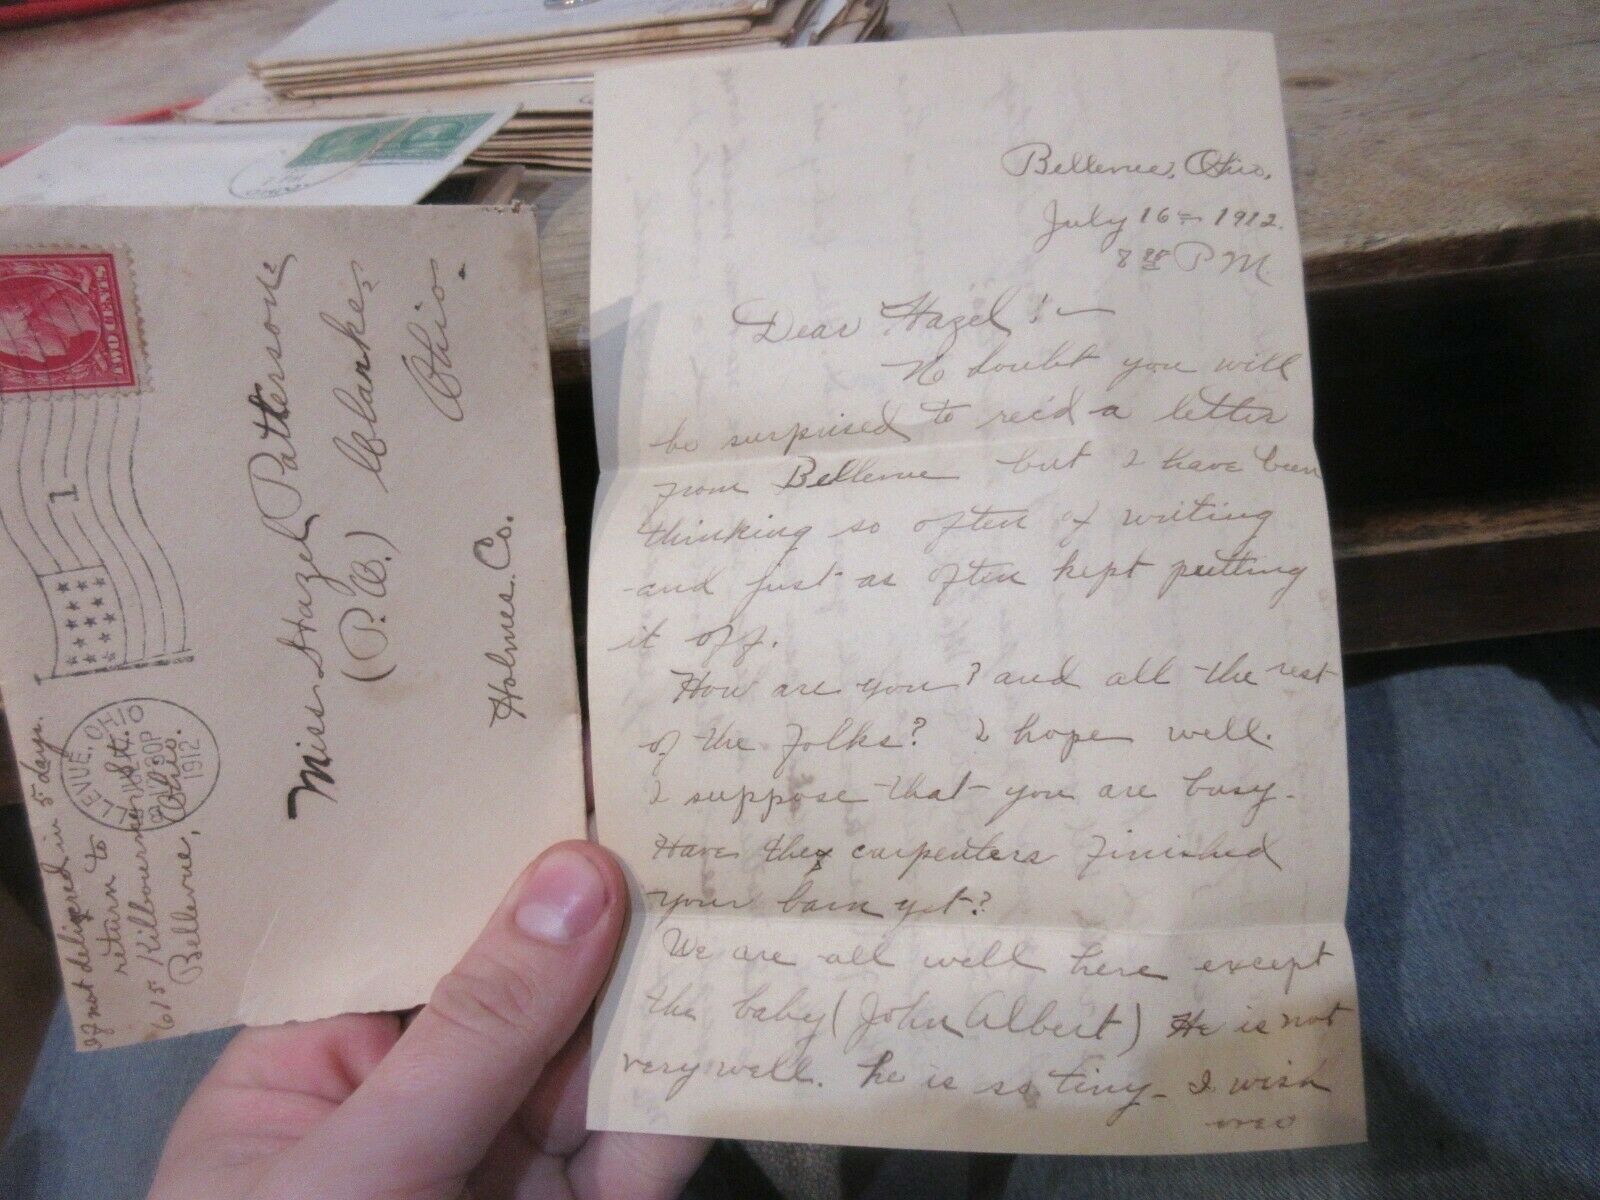 Bellevue, Ohio,
July 16 = 1912.
P M.
Dear Hazel! ~
No doubt you will
be surprised to rec'd a letter
from Bellevue but I have been
thinking so often of writing
and just as often kept putting
it off.
How are you? and all the rest
of the folks? I hope well.
I suppose that you are busy.
Have they carpenters finished
your barn yet?
We are all well here except
the baby (John Albert) He is not
very well. he is so tiny - I wish
over
Miss Hazel Patterson
(P.O.) Clark,
Ohio.
Holmes. Co.
If not delivered in 5 days.
return to
615 Kilbourne St.
Bellevue, Ohio.
TWO CENTS
1
BELLEVUE, OHIO
8-30P
1912